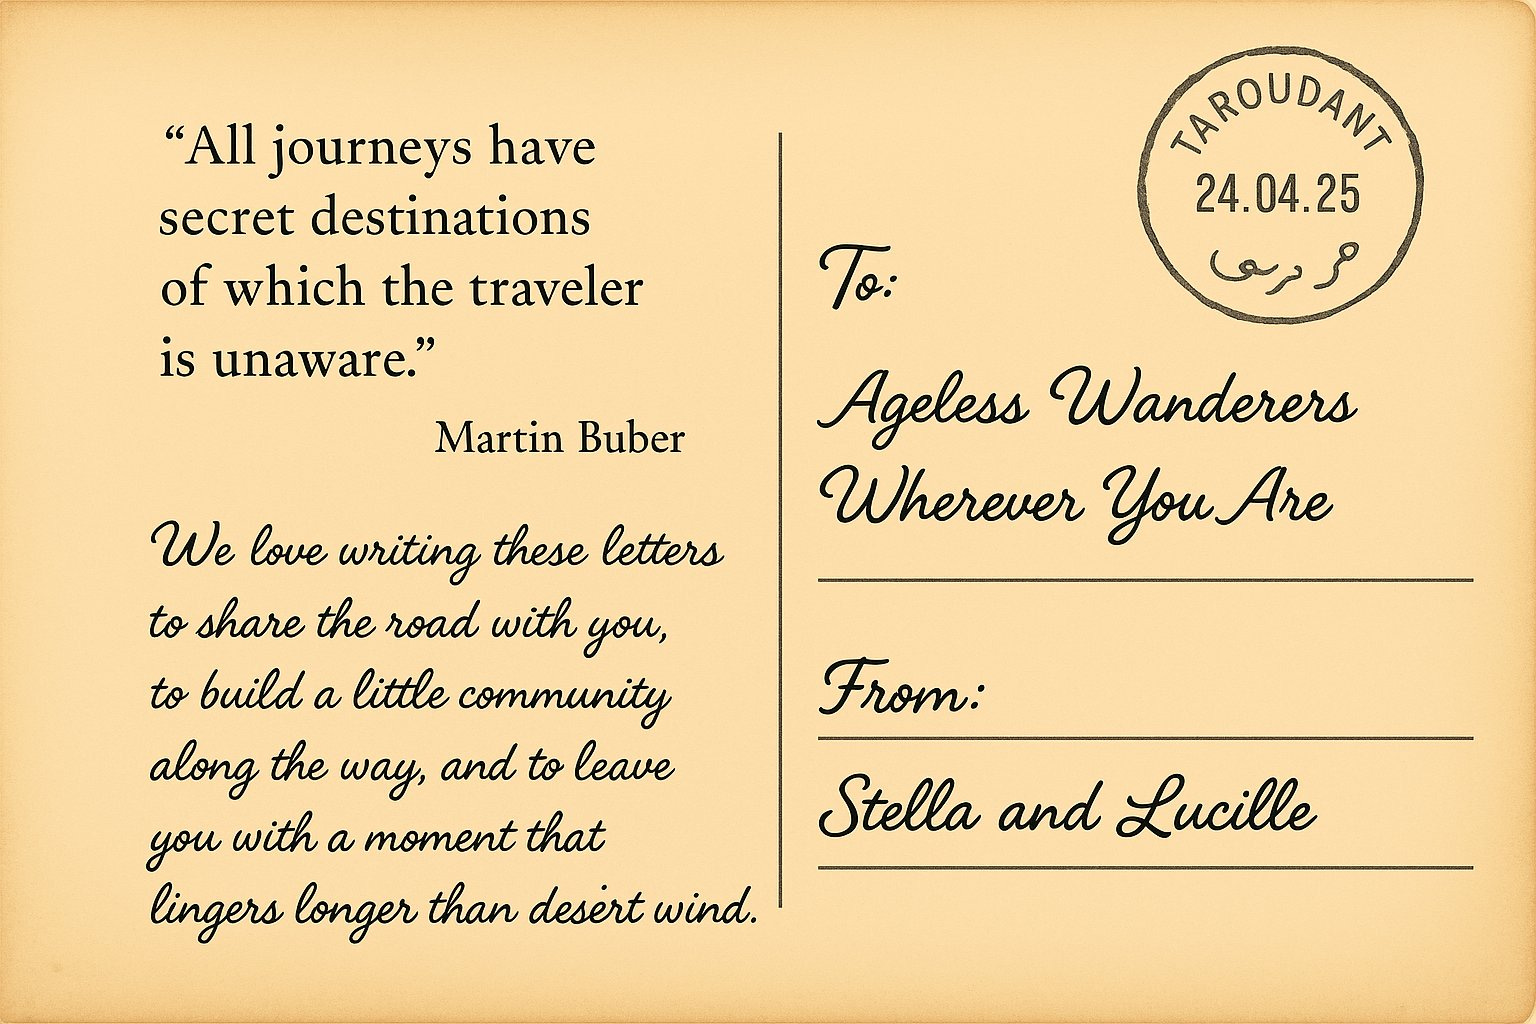 “All journeys have
secret destinations
of which the traveler
is unaware.”
Martin Buber
We love writing these letters
to share the road with you,
to build a little community
along the way, and to leave
you with a moment that
lingers longer than desert wind.
TAROUDANT
24.04.25
To:
Ageless Wanderers
Wherever You Are
From:
Stella and Lucille